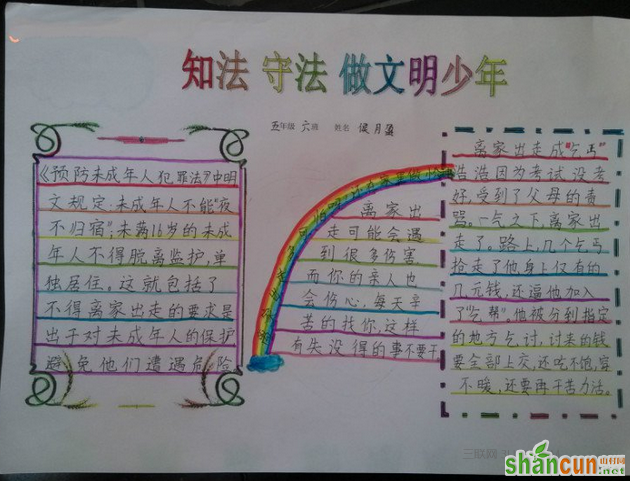 知法 守法 做文明少年
五年级 六班 姓名 侯月盈
《预防未成年人犯罪法》中明
文规定:未成年人不能"夜
不归宿";未满16岁的未成
年人不得脱离监护,单
独居住。这就包括了
不得离家出走的要求是
出于对未成年人的保护
避免他们遭遇危险
离家出
走可能会遇
到很多伤害
而你的亲人也
会伤心,每天辛
苦的找你,这样
有失没得的事不要干
离家出走成"乞丐"
浩浩因为考试没考
好,受到了父母的责
骂。一气之下,离家出
走了。路上,几个乞丐
抢走了他身上仅有的
几元钱,还逼他加入
了"乞帮"。他被分到指定
的地方乞讨,讨来的钱
要全部上交,还吃不饱,穿
不暖,还要再干苦力活。
三联网
shancun
山村网
.net